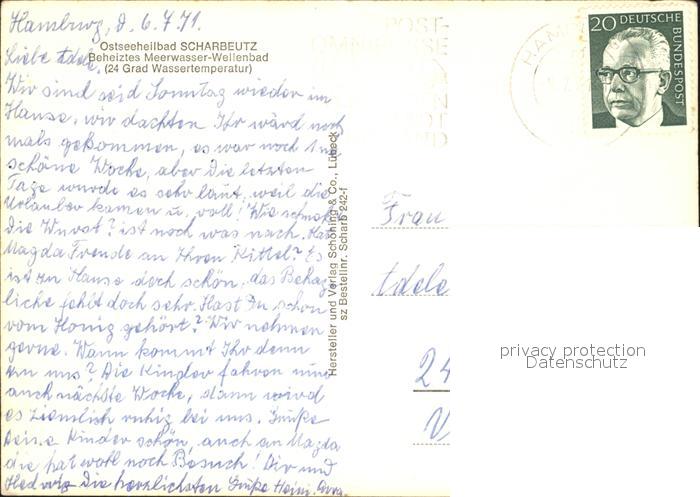 Hamburg, d. 6.7.71.
Ostseeheilbad SCHARBEUTZ
Beheiztes Meerwasser-Wellenbad
(24 Grad Wassertemperatur)
Liebe Adele,
Wir sind seid Sonntag wieder im
Hause, wir dachten Ihr wärd noch
mals gekommen, es war noch 1
schöne Woche, aber die letzten
Tage wurde es sehr laut, weil die
Urlauber kamen u. voll! Wie schmeckt
die Wurst? ist noch was nach. Hat
Magda Freude an Ihren Kittel? Es
ist zu Hause doch schön, das Behag
liche fehlt doch sehr. Hast Du schon
vom Honig gehört? Wir nehmen
gerne. Wann kommt Ihr denn
zu uns? Die Kinder fahren nun
auch nächste Woche, dann wird
es ziemlich ruhig bei uns. Grüße
Deine Kinder schön, auch an Magda
die hat wohl noch Besuch! Dir und
Hedwig die herzlichsten Grüße Heini.
Hersteller und Verlag Schöning & Co., Lübeck
sz Bestellnr. Scharb 242-f
POST-
HAM
20 DEUTSCHE
BUNDESPOST
Frau
Adele
24
V
privacy protection
Datenschutz